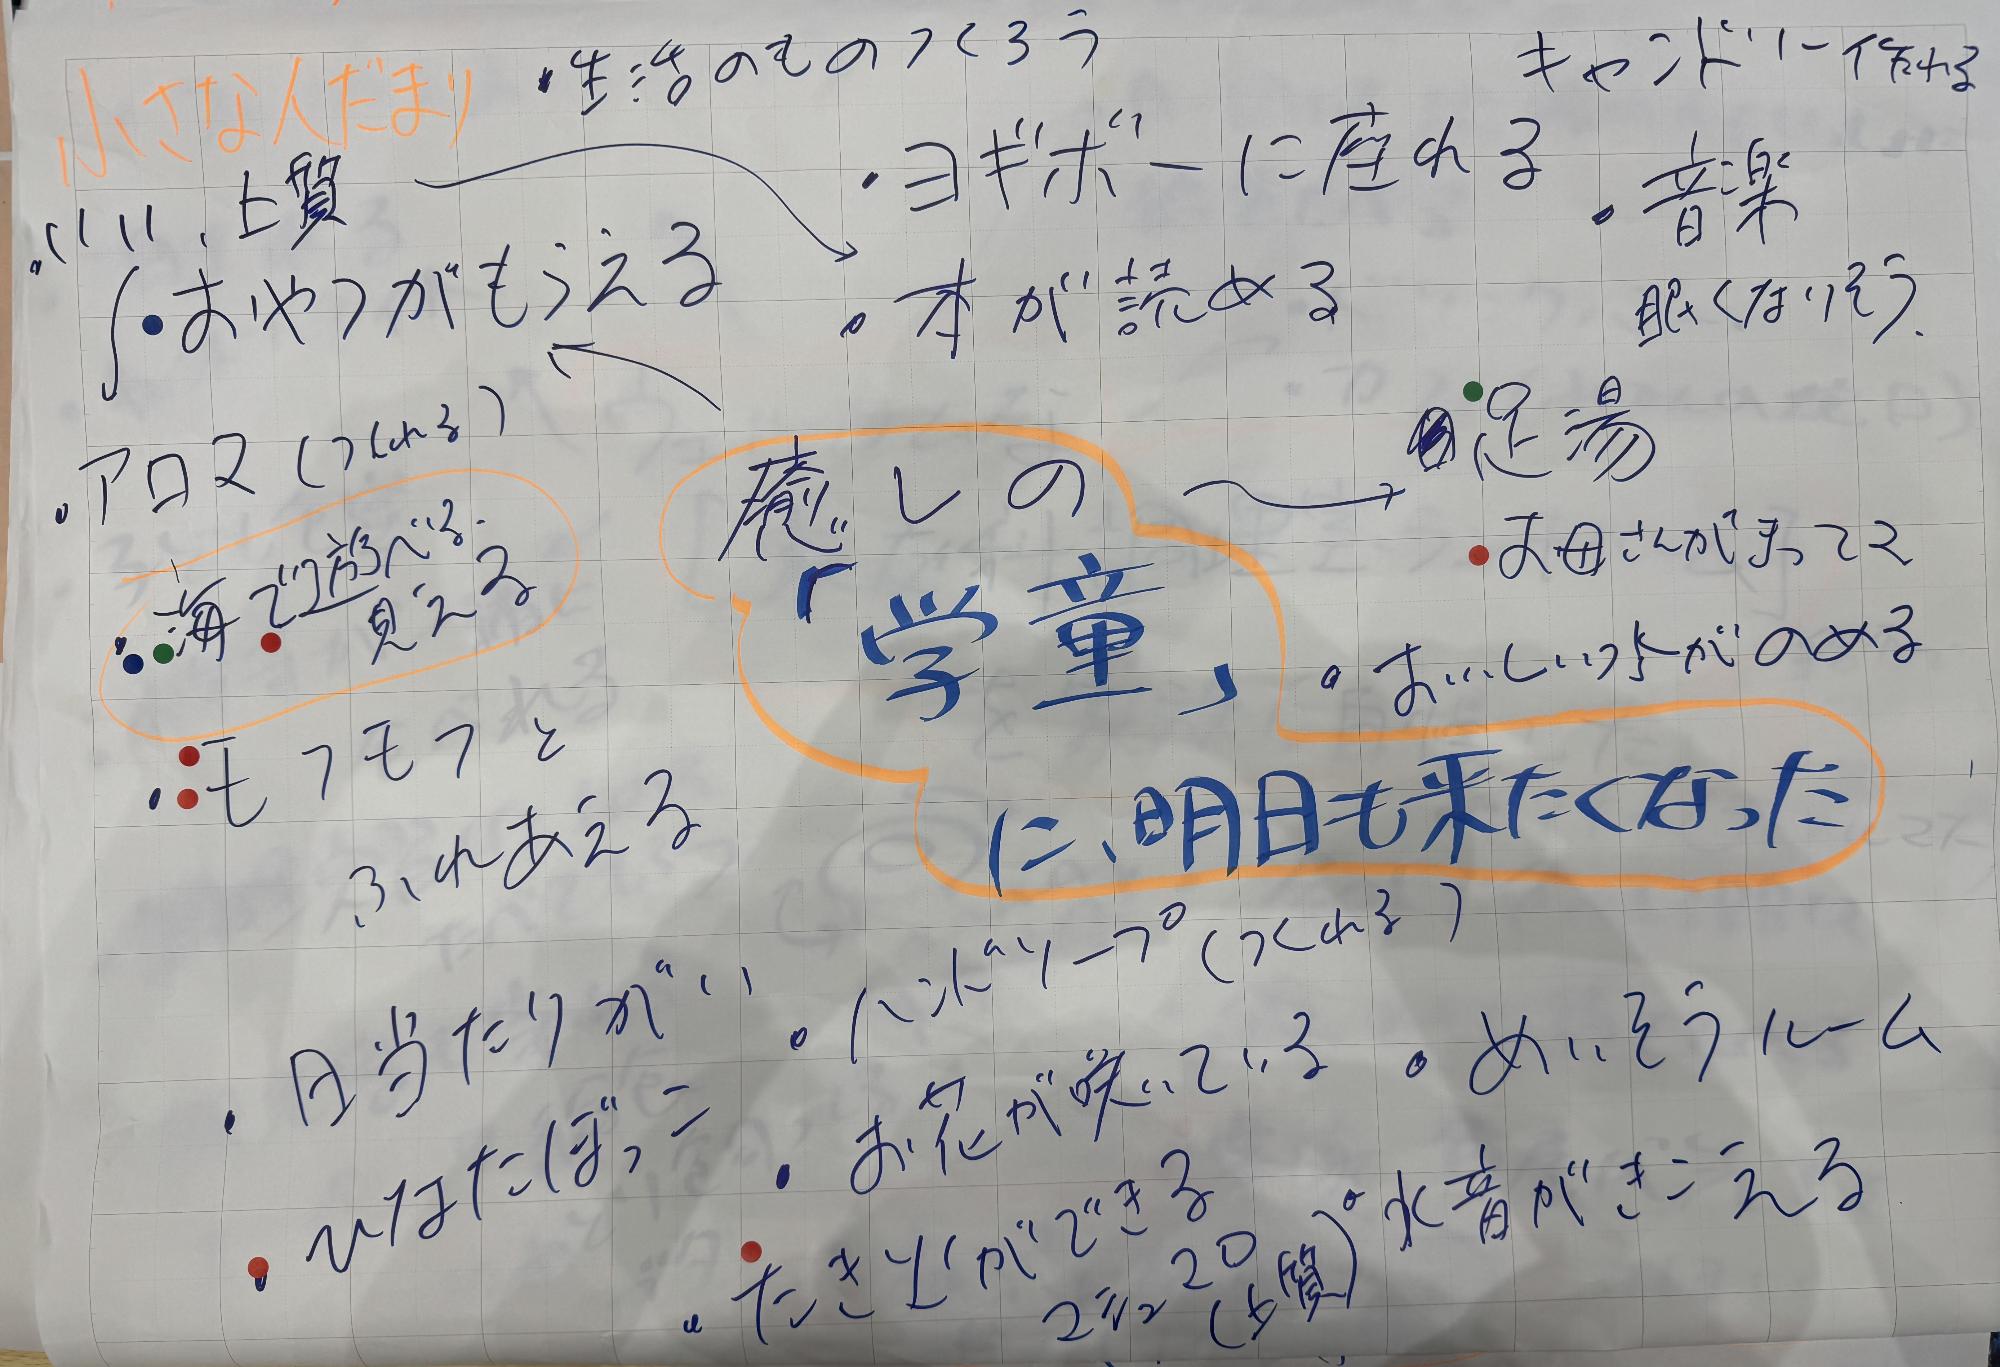 小さな人だまり
・生活のものつくろう
キャンドルー作れる
・いい、上質
・おやつがもらえる
・ヨギボーに座れる
・音楽
眠くなりそう。
・本が読める
・アロマ(つくれる)
足湯
お母さんがまってる
・おいしい水がのめる
・海で遊べる・
見える
癒しの
「学童」
に、明日も来たくなった
・モフモフと
ふれあえる
・日当たりがいい
ひなたぼっこ
・ハンドソープ(つくれる)
・お花が咲いている
・めいそうルーム
・たき火ができる
(上質)
・水音がきこえる